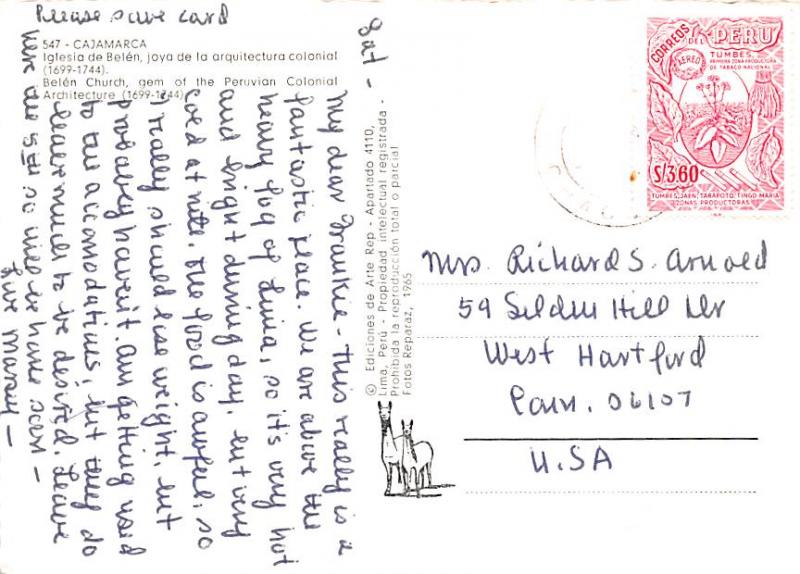 Please save card
547 - CAJAMARCA
Iglesia de Belén, joya de la arquitectura colonial
(1699-1744).
Belén Church, gem of the Peruvian Colonial
Architecture (1699-1744)
Sat -
My dear Frankie - this really is a
fantastic place. We are above the
heavy fog of Lima, so it's very hot
and bright during day, but very
cold at nite. The food is awful, so
I really should lose weight, but
probably haven't. Am getting used
to the accomodations, but they do
leave much to be desired. Leave
here the 5th so will be home soon -
Love
© Ediciones de Arte Rep - Apartado 4110,
Lima, Perú - Propiedad intelectual registrada -
Prohibida la reproducción total o parcial
Fotos Reparaz, 1965
CORREOS DEL PERU
AEREO
TUMBES,
PRIMERA ZONA PRODUCTORA
DE TABACO NACIONAL
S/.3.60
TUMBES, JAEN, TARAPOTO, TINGO MARIA
ZONAS PRODUCTORAS
Mrs. Richard S. Arnold
59 Selden Hill Dr
West Hartford
Conn. 06107
U.S.A